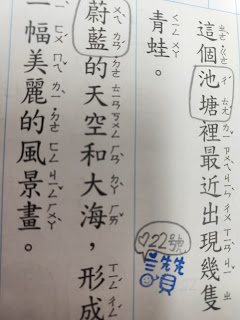 這個池塘裡最近出現幾隻
青蛙。
22號
讚
蔚藍的天空和大海，形成
一幅美麗的風景畫。